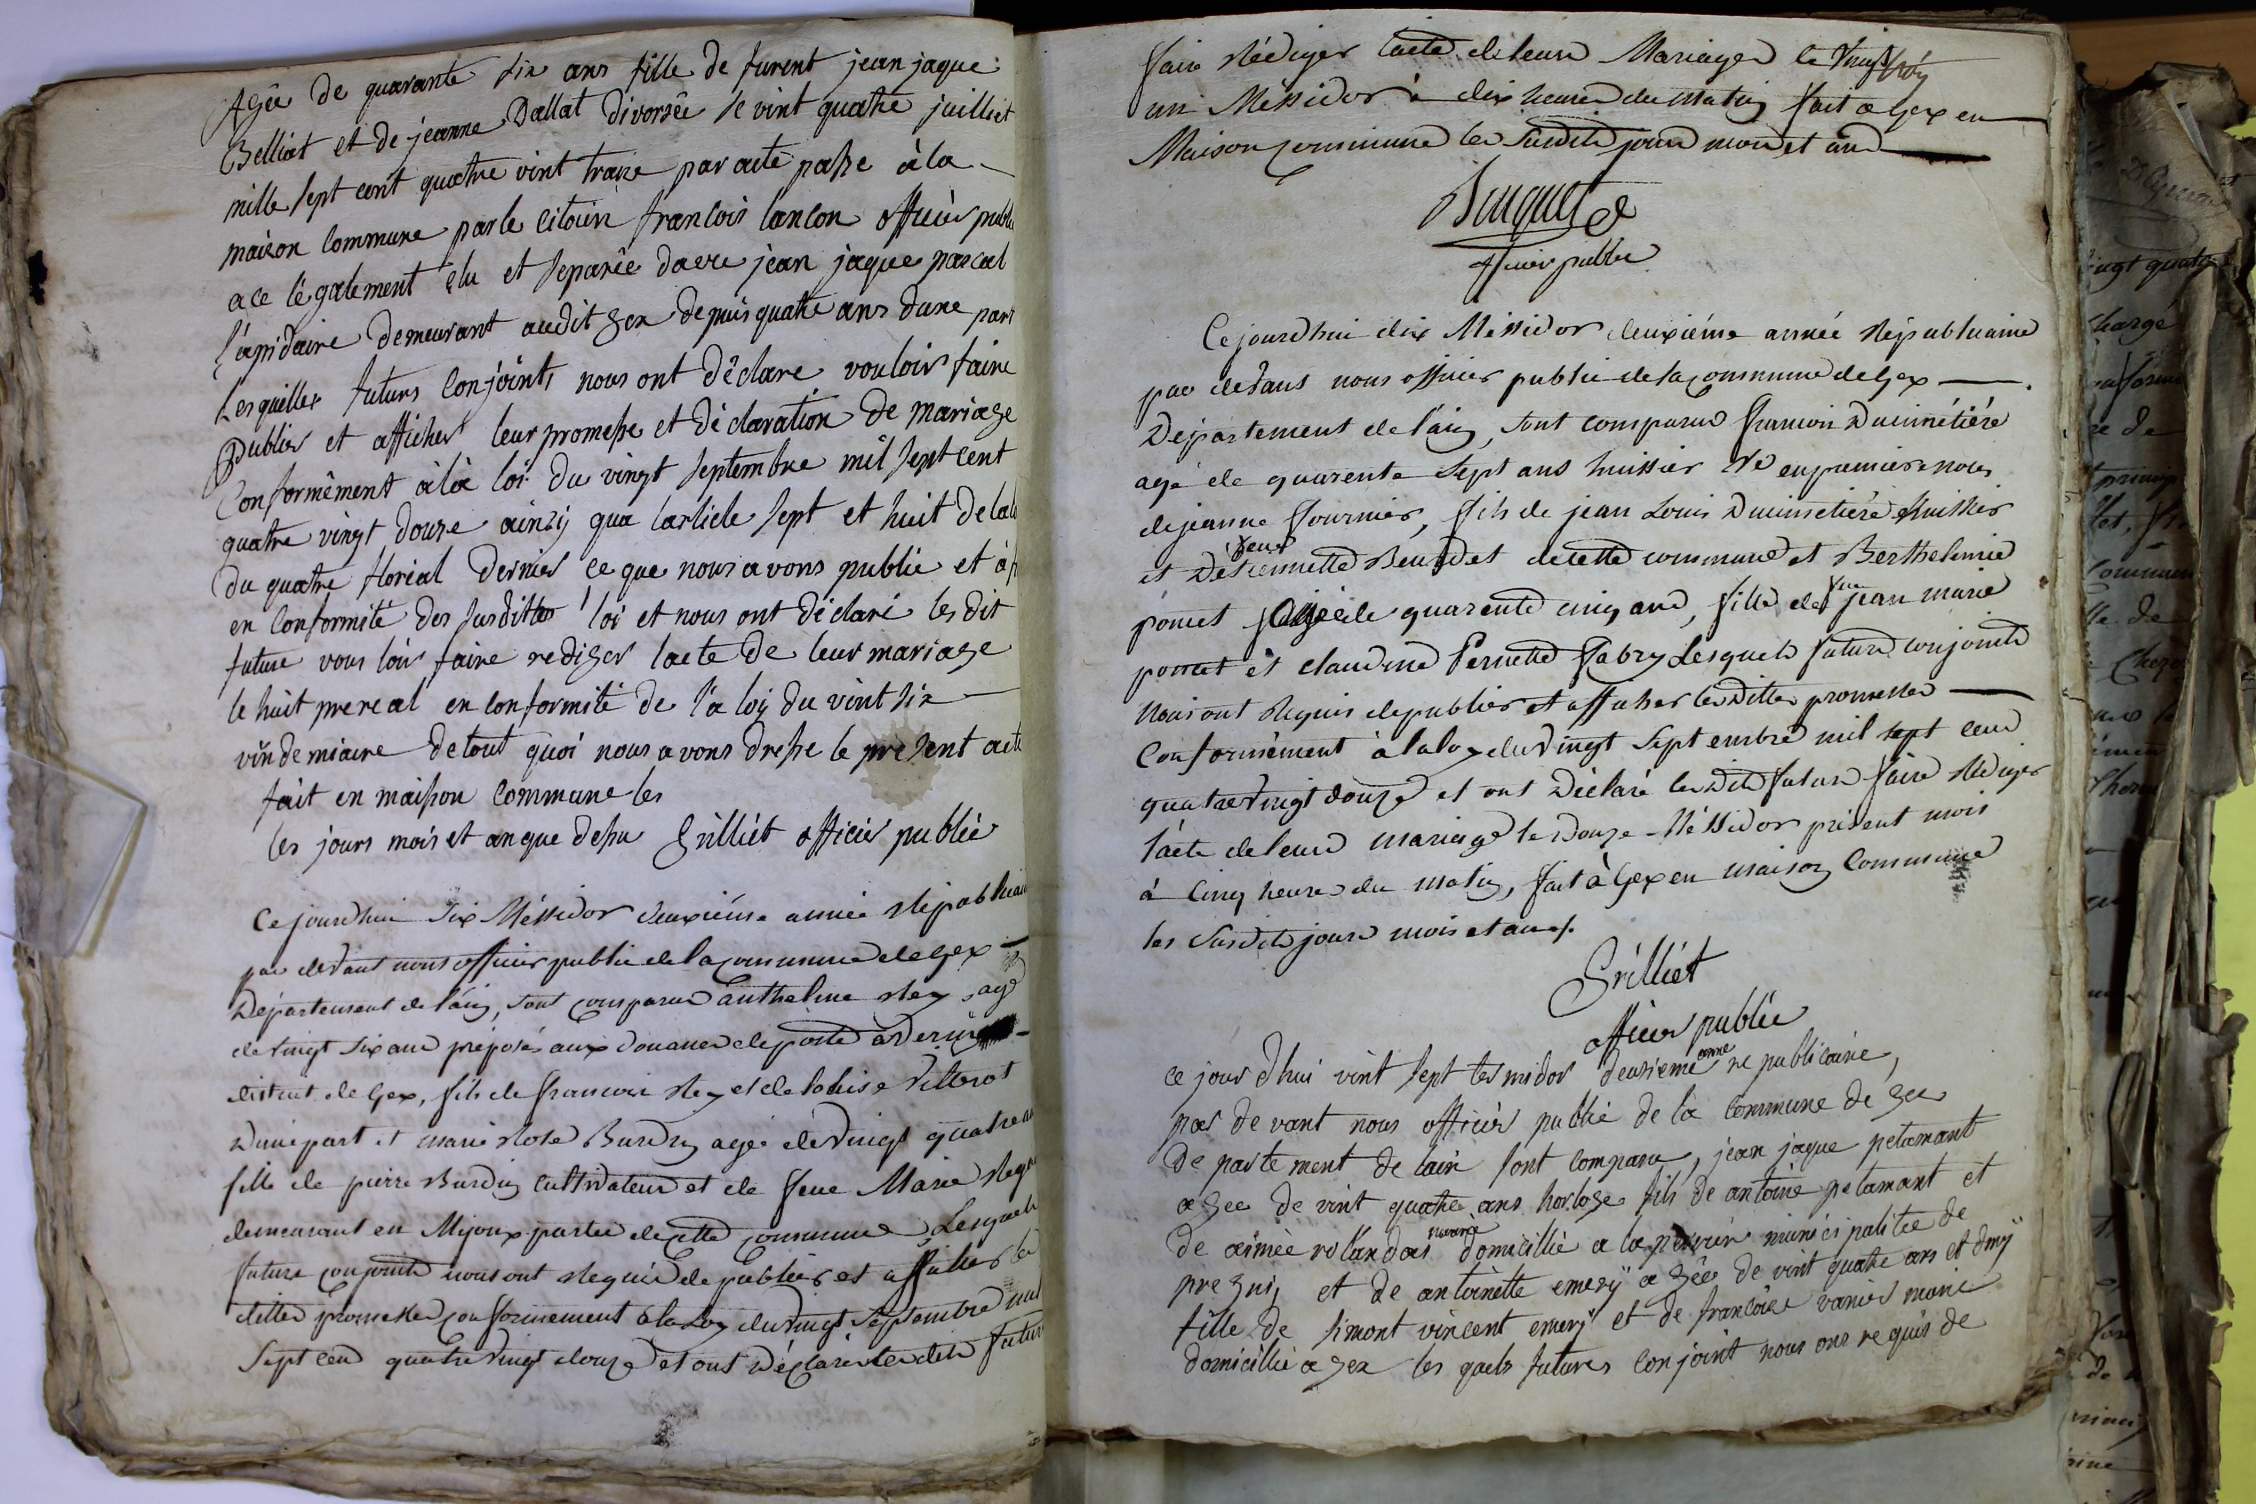 Agée de quarante six ans fille de furent jean jaque
Belliat et de jeanne Dallat divorsée le vint quatre juilliet
mille sept cent quatre vint traize par acte passe à la
maison commune par le citoien francois lancon officier publi
a ce légalement elu et separée davec jean jaque pascal
lapidaire demeurant audit gex depuis quatre ans dune part
Lesquelles futurs conjoints nous ont déclare vouloir faire
Publier et afficher leur promesse et déclaration de mariage
Conformément à la loi du vingt septembre mil sept cent
quatre vingt douze ainsy que larticle sept et huit de la
du quatre floréal dernier ce que nous avons publie et
en conformité des susdittes loi et nous ont déclaré les dit
future vouloir faire rediger lacte de leur mariage
le huit prereal en conformité de la loy du vint six
vindemiaire de tout quoi nous avons dresse le present acte
fait en maisson commune les
les jours mois et an que dessu Grilliet officier publié
Ce jourdhui six Méssidor deuxiéme année Républicai
par devant nous officier public de la commune de Gex
Département de l'ain, sont comparus anthelme Rey agé
de vingt six ans préposés aux douanes de poste à
district de Gex, fils de francois Rey et de louise
D'une part et marie Rose Burdin agée de vingt quatre an
fille de pierre Burdin cultivateur et de feue Marie
demeurant en Mijoux partie de cette commune Lesquels
future conjoints nous ont requis de publier et afficher les
dittes promesses conformement à la Loy du vingt septembre mil
Sept cent quatre vingt douze et ont déclaré les dits futur
faire Rédiger l'acte de leurs Mariages le vingt
un Méssidor à dix heures du matin fait a Gex en
Maison commune les susdits jours mois et ans
officier public
Ce jourdhui dix Méssidor deuxiéme année Républicaine
par devant nous officier public de la commune de Gex
Département de l'ain, sont comparus francois Ducimétière
agé de quarente sept ans huissier né en premiere noces
de jeanne fournier, fils de jean Louis Ducimetiére huissier
et de feue
pennette Beaudet de cette commune et Berthelemie
poncet agée de quarente cinq ans, fille de feu jean marie
poncet et claudine Pernette fabry Lesquels futurs conjoints
Nous ont Requis de publier et afficher les dittes promesses
Conformément à la loy du vingt Septembre mil sept cens
quatre vingt douze et ont déclaré les dits futurs faire Rédiger
l'acte de leurs mariage le douze Méssidor présent mois
à Cinq heure du matin, fait à Gex en maison Commune
les Susdits jours mois et an
Grilliet
officier publié
ce jour d'hui vint sept termidor deuxieme anne republicaine,
par devant nous officier publié de la commune de gex
departement de lain sont comparu, jean jaque petamant
a gee de vint quatre ans horloge fils de antoine petamant et
de aimée rolandas mariée domicillié a la municipalitée de
pregni, et de antoinette emery a gée de vint quatre ans et dmÿ
fille de simont vincent emerÿ et de francoise vanier marie
domicillié a gex les quels futures conjoint nous ons requis de